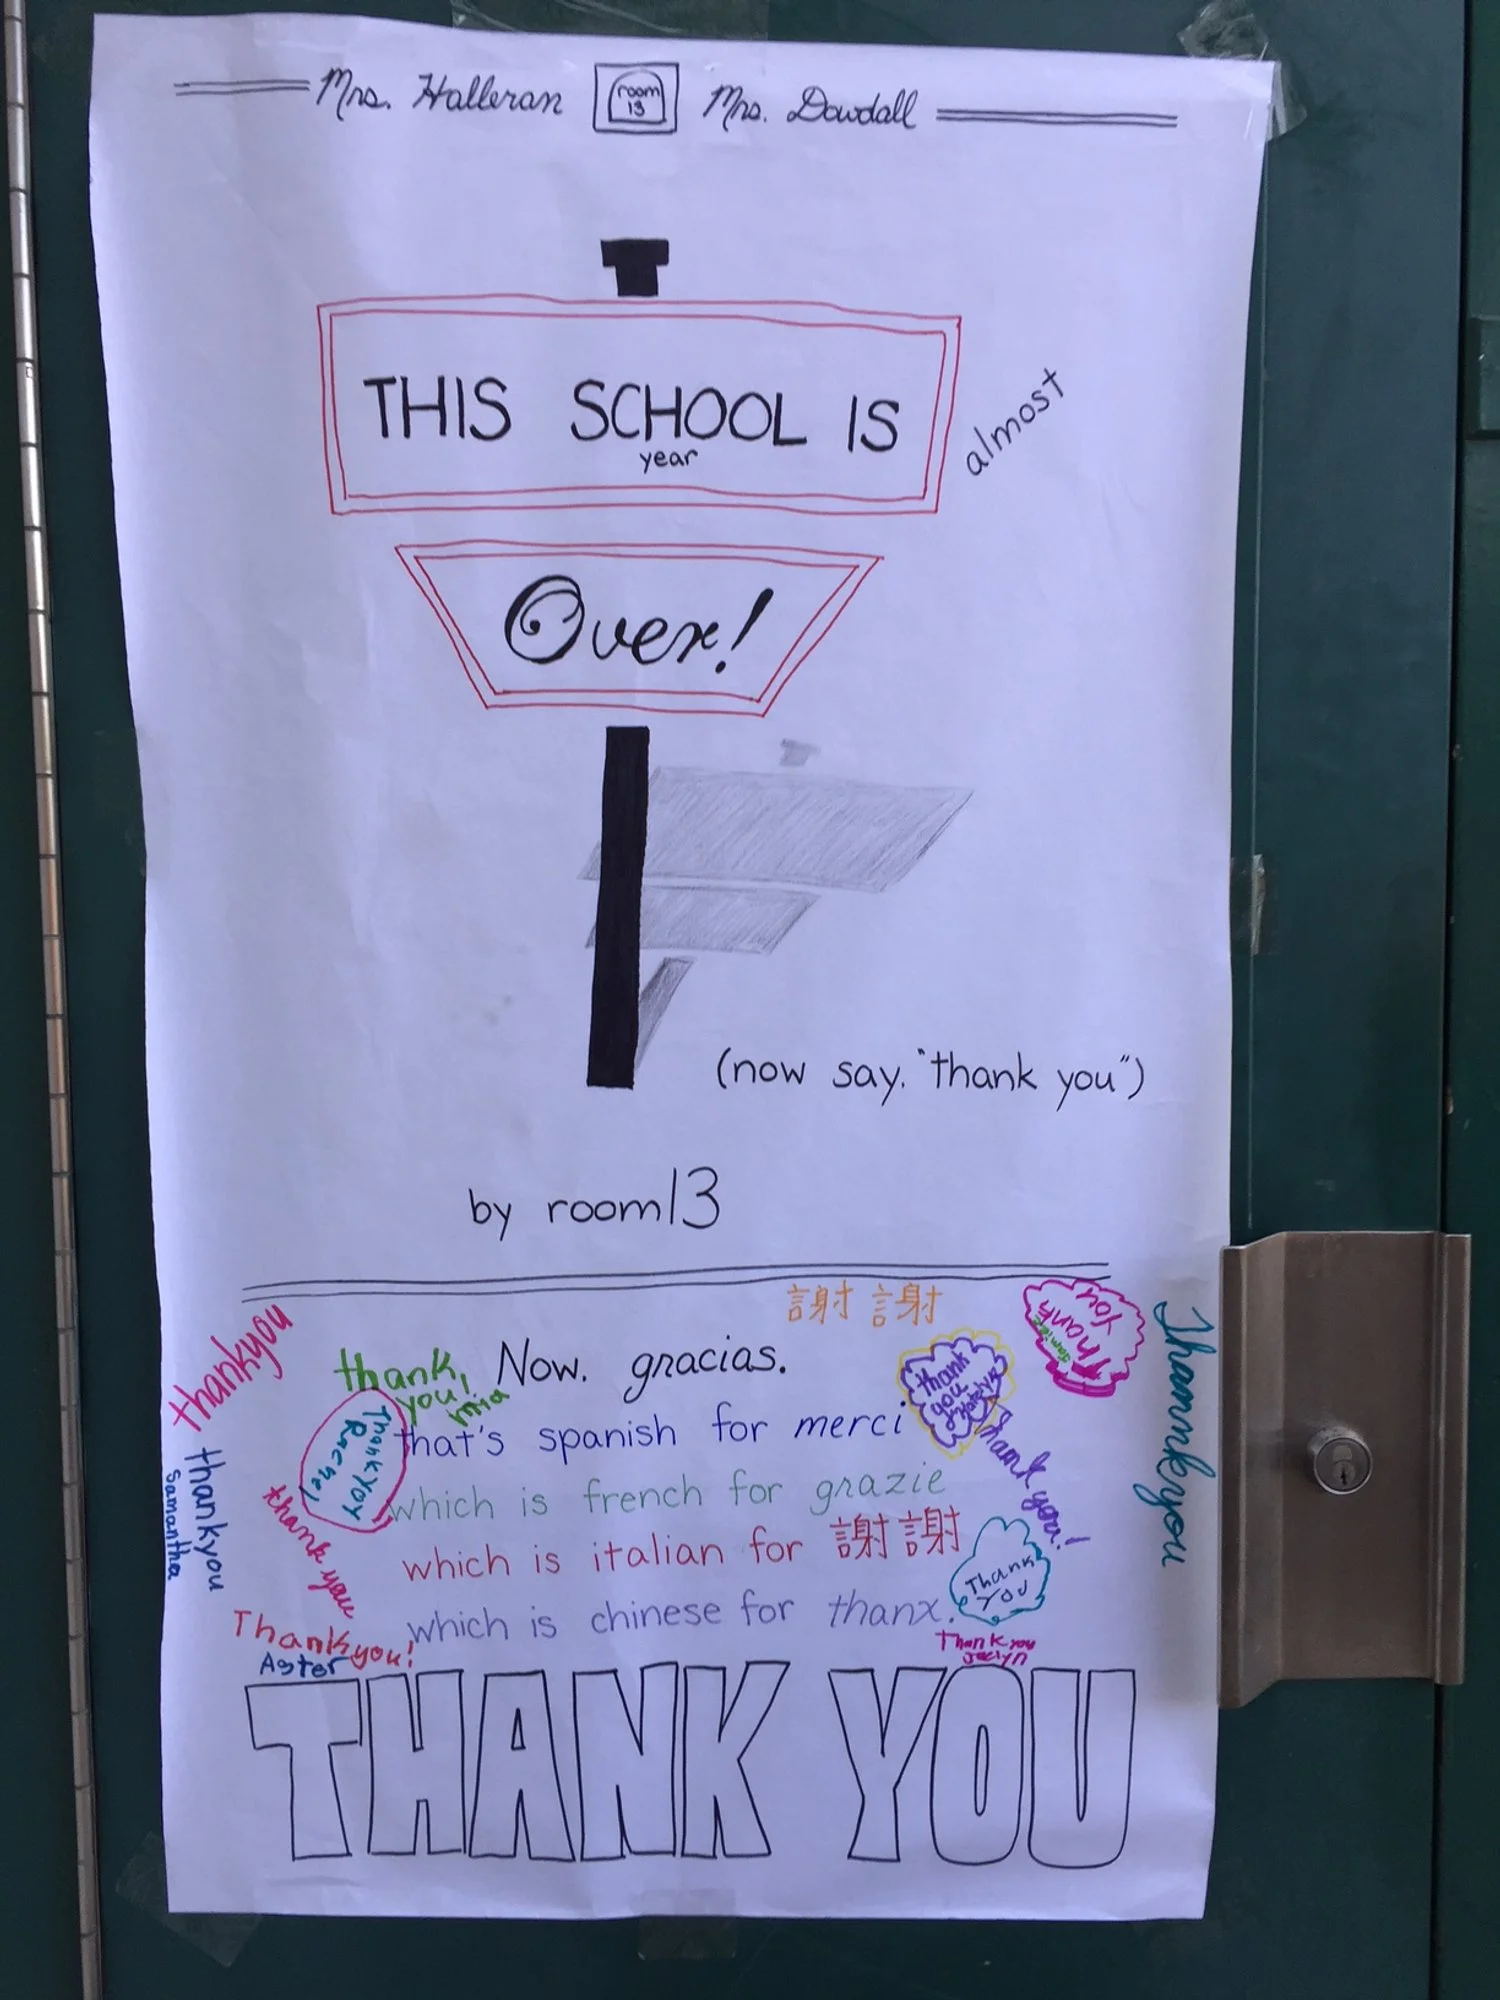 Mrs. Halleran room 13 Mrs. Dowdall
THIS SCHOOL IS
year
almost
Over!
(now say. "thank you")
by room 13
謝謝
thank you
Thank You
Thankyou
thank you! mia
Now. gracias.
thank you Katelyn
Thank you Rachel
that's spanish for merci
thank you!
thankyou
samantha
which is french for grazie
thank you
which is italian for 謝謝
Thank you
which is chinese for thanx.
Thank you!
Aster
Thank you
Jaclyn
THANK YOU